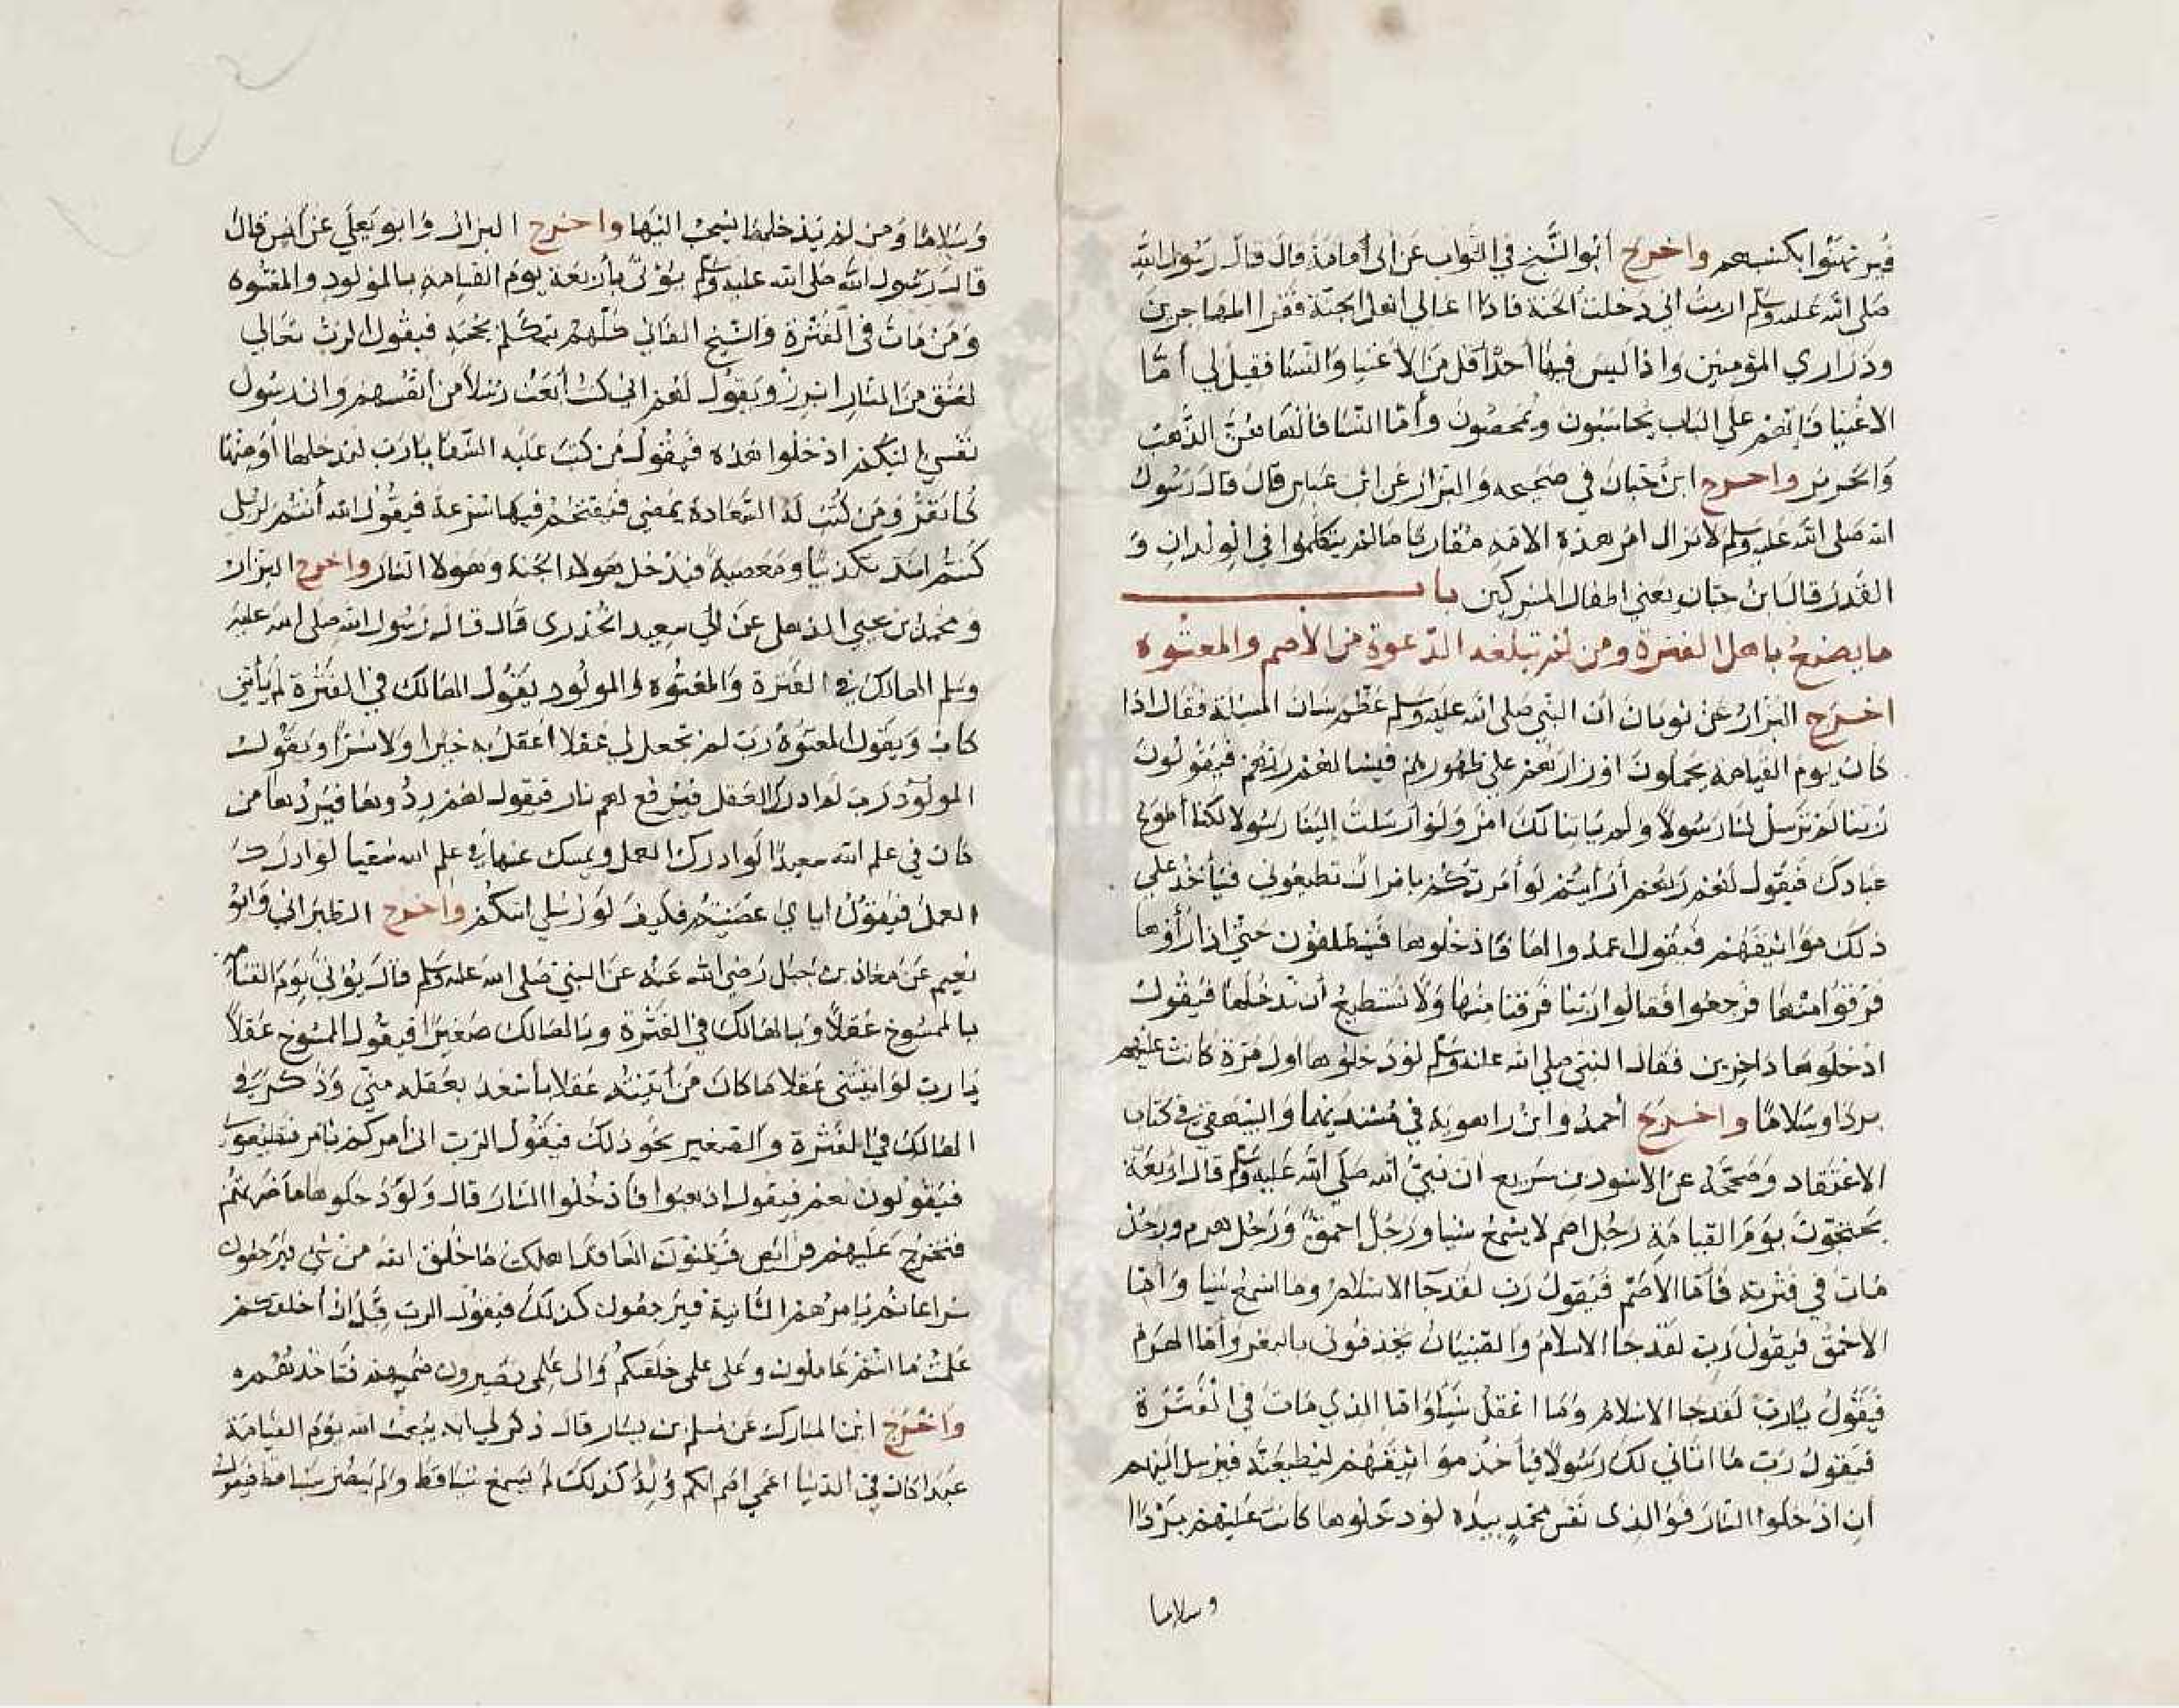 فيرتهنوا بكسبهم واخرج أبو الشيخ في الثواب عن أبى أمامة قال قال رسول الله
صلى الله عليه وسلم اريت اني دخلت الجنة فاذا اعالي اهل الجنة فقرا المهاجرين
وذراري المؤمنين واذا ليس فيها أحد اقل من الأغنيا والنسا فقيل لي أمّا
الاغنيا فإنهم على الباب يحاسبون ويمحصون وأما النسا فألهاهن الذهب
والحرير واخرج ابن حبان في صحيحه والبزار عن ابن عباس قال قال رسول
الله صلى الله عليه وسلم لا يزال امر هذه الامة مقاربا ما لم يتكلموا في الولدان و
القدر قال ابن حبان يعني اطفال المشركين باب
ما يصنع باهل الفترة ومن لم تبلغه الدعوة من الأصم والمعتوه
اخرج البزار عن ثوبان أن النبي صلى الله عليه وسلم عظم شان المسئلة فقال اذا
كان يوم القيامة يحملون اوزارهم على ظهورهم فيسالهم ربهم فيقولون
ربنا لم ترسل لنا رسولا ولم ياتنا لك امر ولو أرسلت إلينا رسولا لكنا أطوع
عبادك فيقول لهم ربهم أرأيتم لو أمرتكم بامر ان تطيعوني فيأخذ على
ذلك مواثيقهم فيقول اعمدوا لها فادخلوها فينطلقون حتى اذا رأوها
فرقوا منها فرجعوا فقالوا ربنا فرقنا منها ولا نستطيع أن ندخلها فيقول
ادخلوها داخرين فقال النبي صلى الله عليه وسلم لو دخلوها اول مرة كانت عليهم
بردا وسلاما واخرج أحمد وابن راهويه في مسنديهما والبيهقي في كتاب
الاعتقاد وصححه عن الاسود بن سريع ان نبي الله صلى الله عليه وسلم قال اربعة
يحتجون يوم القيامة رجل اصم لا يسمع شيا ورجل احمق ورجل هرم ورجل
مات في فترة فأما الأصم فيقول رب لقد جا الاسلام وما اسمع شيا وأما
الاحمق فيقول رب لقد جا الاسلام والصبيان يحذفوني بالبعر وأما الهرم
فيقول يارب لقد جا الاسلام وما اعقل شيأ واما الذي مات في الفترة
فيقول رب ما اتاني لك رسول فيأخذ مواثيقهم ليطيعنه فيرسل اليهم
أن ادخلوا النار فوالذى نفس محمد بيده لو دخلوها كانت عليهم بردا
وسلاما
وسلاما ومن لم يدخلها يسحب اليها واخرج البزار وابو يعلى عن انس قال
قال رسول الله صلى الله عليه وسلم يؤتى بأربعة يوم القيامة بالمولود والمعتوه
ومن مات في الفترة والشيخ الفاني كلهم يتكلم بحجته فيقول الرب تعالى
لعنق من النار ابرز ويقول لهم اني كنت أبعث رسلا من أنفسهم واني رسول
نفسي اليكم ادخلوا هذه فيقول من كتب عليه الشقا يارب اندخلها أو منها
كنا نفر ومن كتب له السعادة يمضي فيقتحم فيها مسرعة فيقول الله أنتم لرسلي
كنتم اشد تكذيبا ومعصية فيدخل هولا الجنة وهولا النار واخرج البزار
ومحمد بن يحيى الذهلى عن أبي سعيد الخدرى قال قال رسول الله صلى الله عليه
وسلم الهالك في الفترة والمعتوه والمولود يقول الهالك في الفترة لم يأتني
كتاب ويقول المعتوه رب لم تجعل لي عقلا أعقل به خيرا ولا شرا ويقول
المولود رب لم ادرك العقل فيرفع لهم نار فيقول لهم ردوها فيردها من
كان في علم الله سعيدا لو ادرك العمل ويمسك عنها من في علم الله شقيا لو ادرك
العمل فيقول اياي عصيتم فكيف لو رسلي اتتكم واخرج الطبراني وابو
نعيم عن معاذ بن جبل رضي الله عنه عن النبي صلى الله عليه وسلم قال يؤتى يوم القيامة
بالممسوخ عقلا وبالهالك في الفترة وبالهالك صغيرا فيقول الممسوخ عقلا
يا رب لو اتيتني عقلا ما كان من أتيته عقلا بأسعد بعقله مني وذكر في
الهالك في الفترة والصغير نحو ذلك فيقول الرب انى أمركم بامر فتطيعوني
فيقولون نعم فيقول اذهبوا فادخلوا النار قال ولو دخلوها ما ضرتهم
فتخرج عليهم فرائص فيظنون انها قد اهلكت ما خلق الله من شي فيرجعون
سراعا ثم يامرهم الثانية فيرجعون كذلك فيقول الرب قبل ان أخلقكم
علمت ما انتم عاملون وعلى علمي خلقتكم والى علمي تصيرون ضميهم فتاخذهم
واخرج ابن المبارك عن مسلم بن يسار قال ذكر لي انه يبعث الله يوم القيامة
عبدا كان في الدنيا اعمى اصم ابكم ولد كذلك لم يسمع شيا قط ولم يبصر شيا قط فيقول